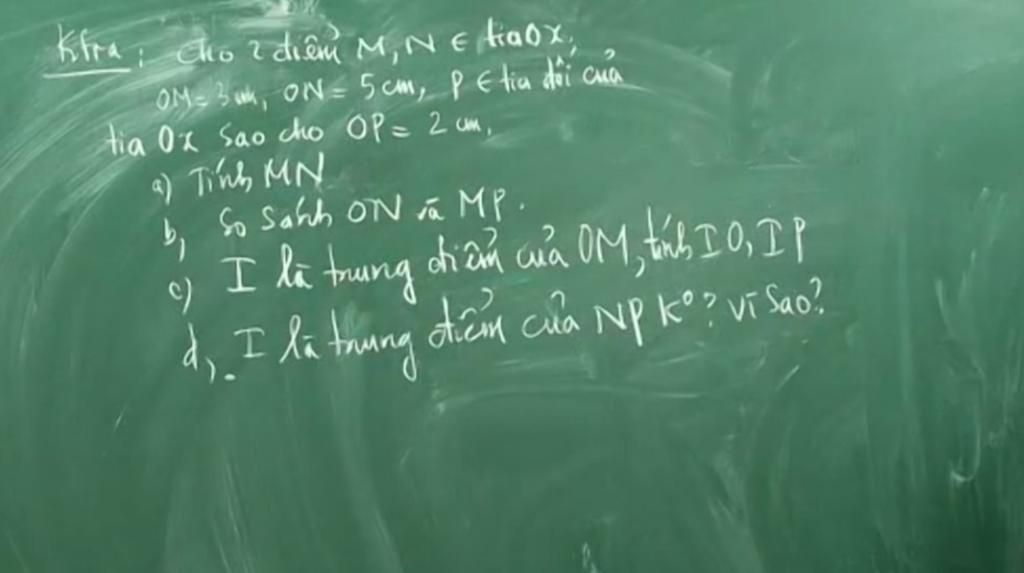 Ktra : cho 2 điểm M, N ∈ tia Ox,
OM = 3 cm, ON = 5 cm, P ∈ tia đối của
tia Ox sao cho OP = 2 cm.
a) Tính MN
b, So sánh ON và MP.
c) I là trung điểm của OM, tính IO, IP
d, I là trung điểm của NP Kº? Vì sao?